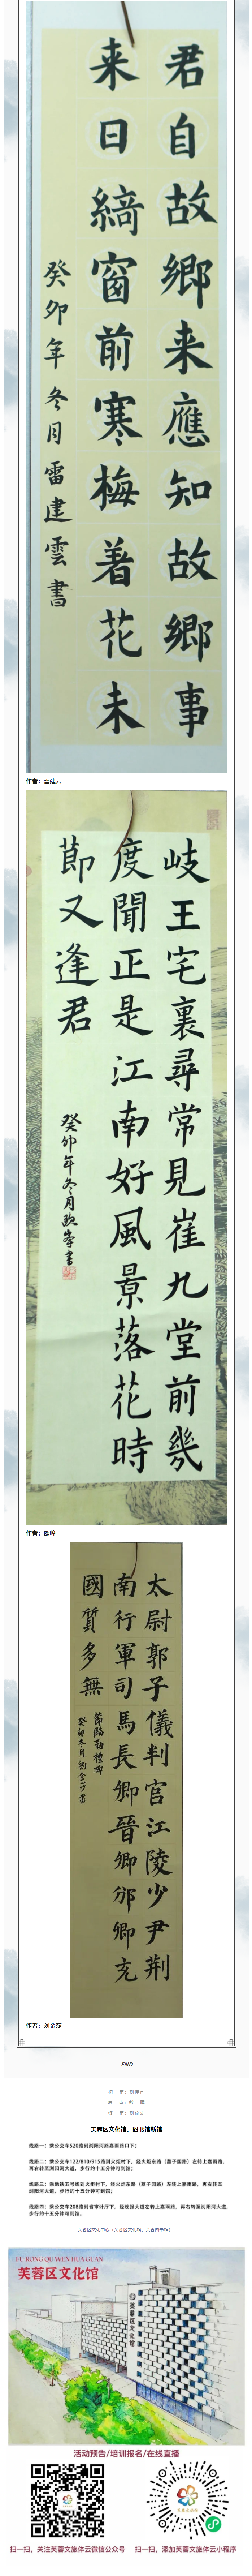 君自故鄉来應知故鄉事
来日綺窗前寒梅着花未
癸卯年冬月雷建雲書
作者：雷建云
岐王宅裏尋常見崔九堂前幾
度聞正是江南好風景落花時
節又逢君
癸卯年冬月欧峰書
作者：欧峰
太尉郭子儀判官江陵少尹荆
南行軍司馬長卿晉卿邠卿充
國質多無
節臨勤禮碑
癸卯冬月劉金莎書
作者：刘金莎
- END -
芙蓉区文化馆、图书馆新馆
线路一：乘公交车520路到浏阳河路嘉雨路口下；
线路二：乘公交车122/810/915路到火炬村下，经火炬东路（嘉子园路）左转上嘉雨路，
再右转至浏阳河大道，步行约十五分钟可到馆；
线路三：乘地铁五号线到火炬村下，经火炬东路（嘉子园路）左转上嘉雨路，再右转至
浏阳河大道，步行约十五分钟可到馆；
线路四：乘公交车208路到省审计厅下，经晚报大道左转上嘉雨路，再右转至浏阳河大道，
步行约十五分钟可到馆。
芙蓉区文化中心（芙蓉区文化馆、芙蓉图书馆）
FU RONG QU WEN HUA GUAN
芙蓉区文化馆
活动预告/培训报名/在线直播
扫一扫，关注芙蓉文旅体云微信公众号
扫一扫，添加芙蓉文旅体云小程序